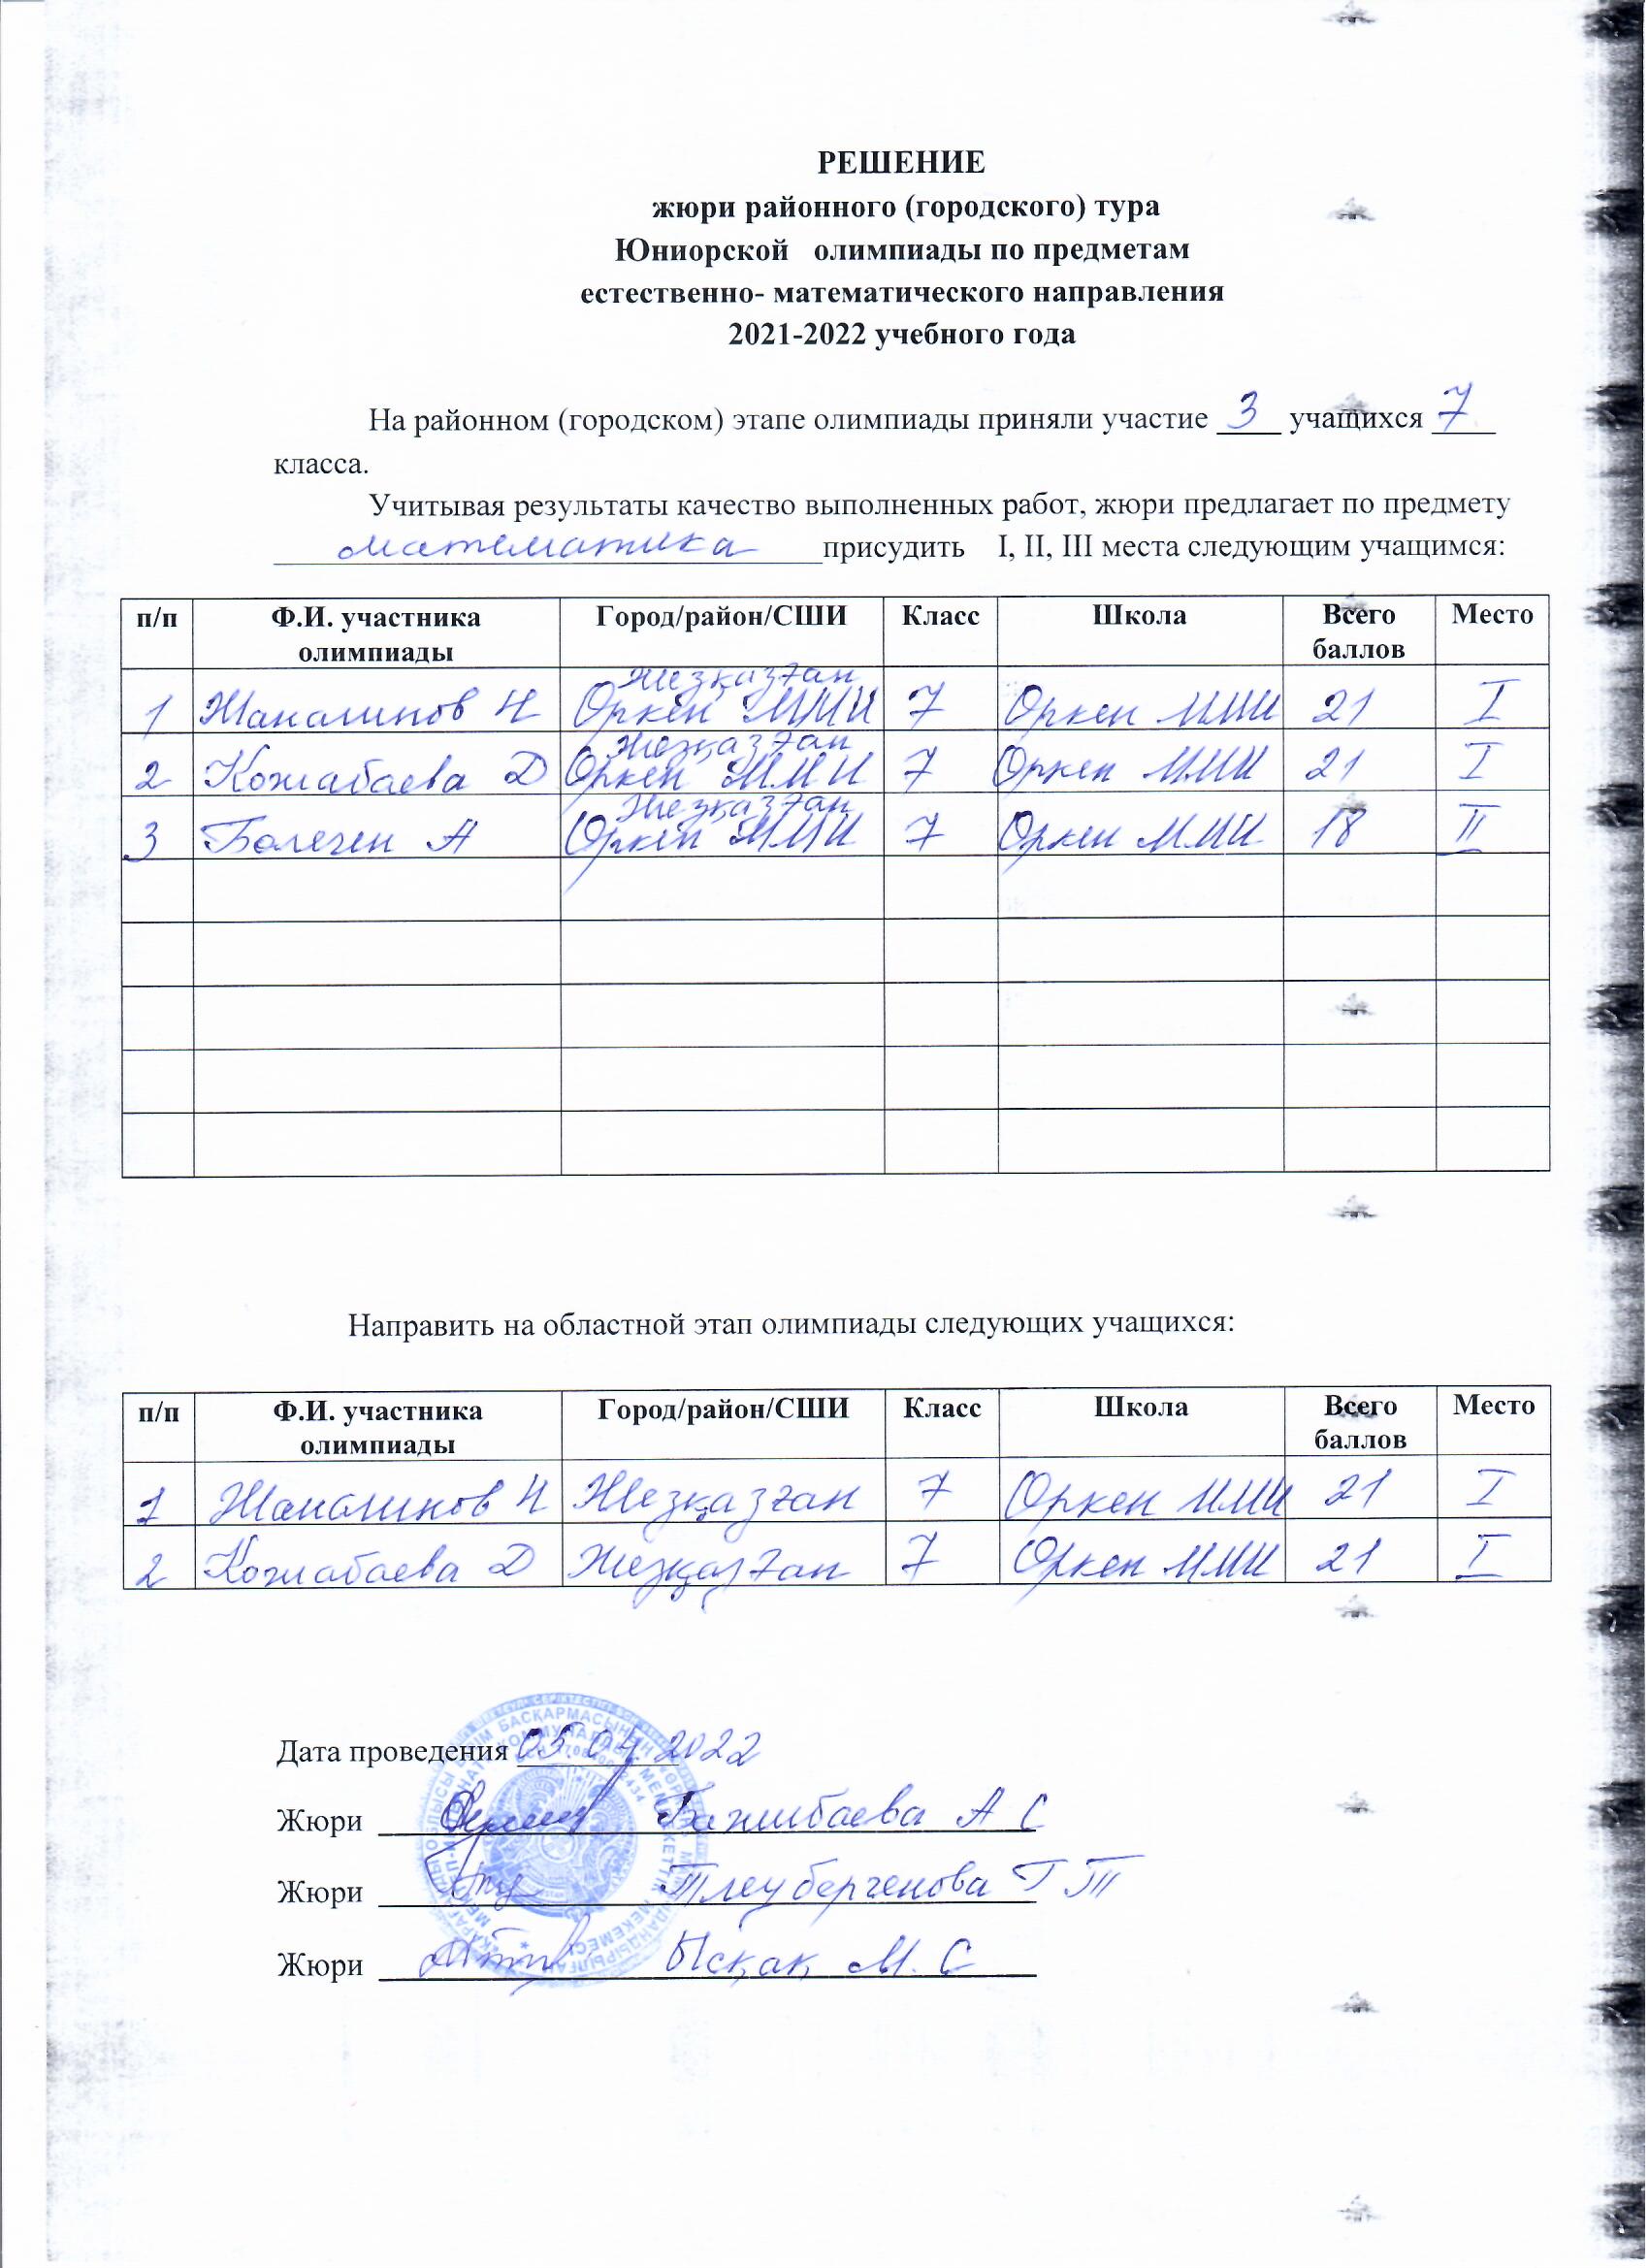 РЕШЕНИЕ
жюри районного (городского) тура
Юниорской олимпиады по предметам
естественно- математического направления
2021-2022 учебного года
На районном (городском) этапе олимпиады приняли участие 3 учащихся 7
класса.
Учитывая результаты качество выполненных работ, жюри предлагает по предмету
математика присудить I, II, III места следующим учащимся:
п/п Ф.И. участника олимпиады Город/район/СШИ Класс Школа Всего баллов Место
1 Жаналинов Н Жезқазған Өркен ММИ 7 Өркен ММИ 21 I
2 Кожабаева Д Жезқазған Өркен ММИ 7 Өркен ММИ 21 I
3 А Жезқазған Өркен ММИ 7 Өркен ММИ 18 II
Направить на областной этап олимпиады следующих учащихся:
п/п Ф.И. участника олимпиады Город/район/СШИ Класс Школа Всего баллов Место
1 Жаналинов Н Жезқазған 7 Өркен ММИ 21 I
2 Кожабаева Д Жезқазған 7 Өркен ММИ 21 I
Дата проведения 05 04 2022
Жюри А С
Жюри Тлеубергенова Г Т
Жюри Ысқақ М. С